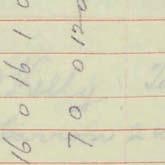 16 0 16 1
7 0 0 12